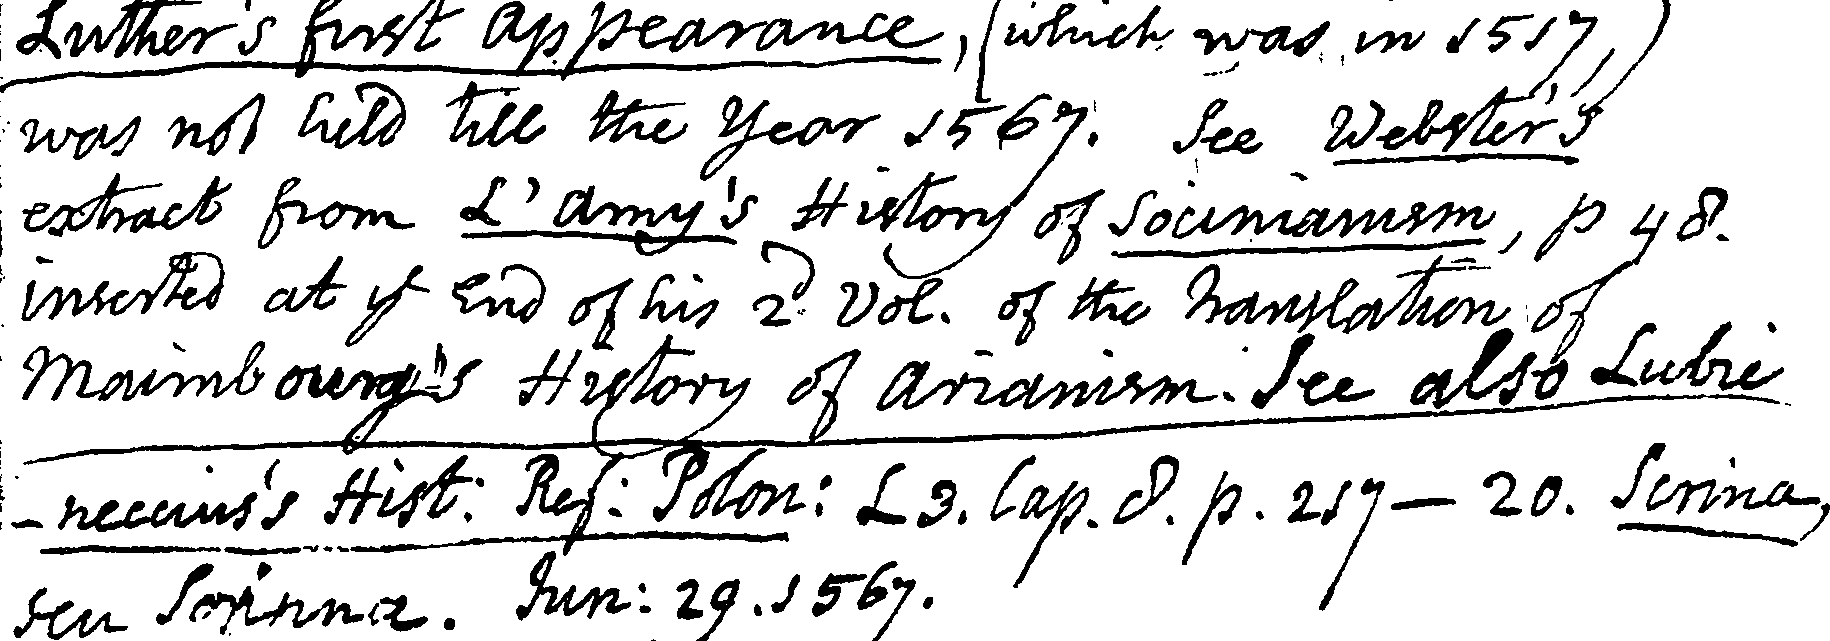 Luther's first appearance, (which was in 1517,)
was not held till the Year 1567. See Webster's
extract from L'amy's History of Socinianism, p 48.
inserted at ye End of his 2d Vol. of the Translation of
Maimbourg's History of Arianism. See also Lubie
-neccius's Hist: Ref: Polon: L 3. Cap. 8. p. 217 — 20. Scrina,
seu Scrinna. Jun: 29. 1567.